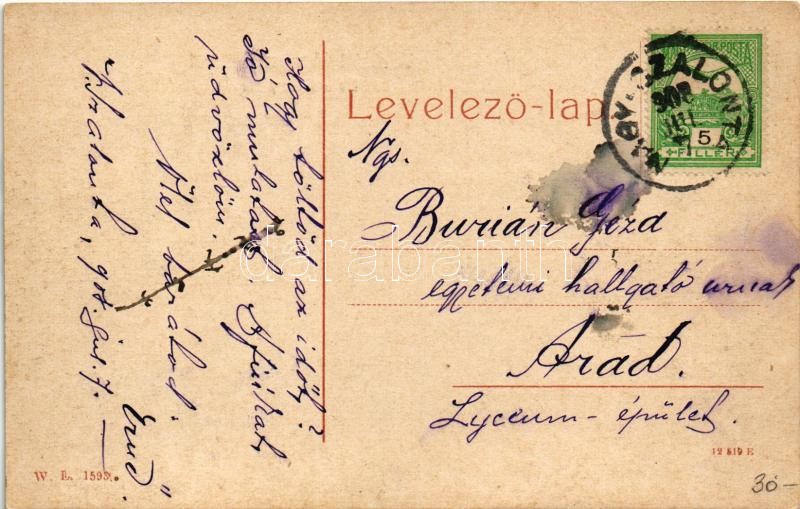 Hogy töltöd az időt?
Jó mulatást. A fiúkat
üdvözlöm.
Ölel barátod
Ernő
N.Szalonta, 908. jul. 7.
Levelező-lap.
NAGY-SZALONTA
908
JUL
7
5
FILLÉR
Ngs.
Burián Géza
egyetemi hallgató urnak
Arad.
Lyceum-épület.
darabanth
W. L. 1595.
12 519 E
30-